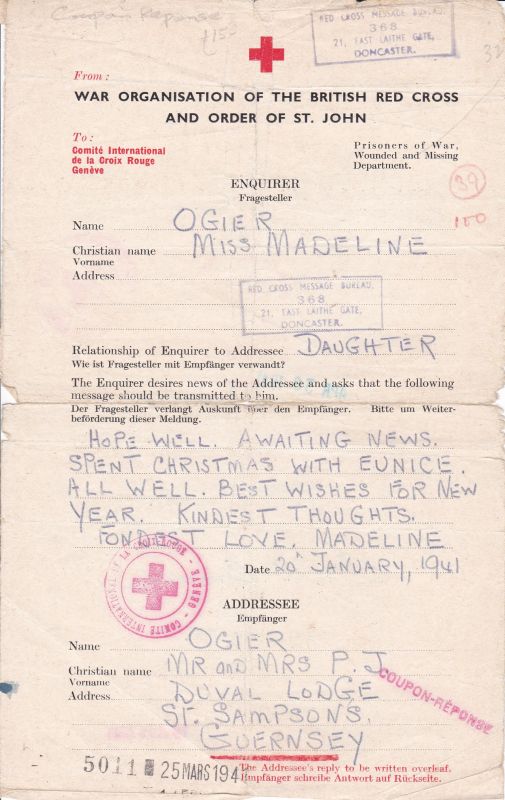 Coupon Réponse
£150
RED CROSS MESSAGE BUREAU.
368
21, EAST LAITHE GATE,
DONCASTER.
32
From:
WAR ORGANISATION OF THE BRITISH RED CROSS
AND ORDER OF ST. JOHN
To:
Comité International
de la Croix Rouge
Genève
Prisoners of War,
Wounded and Missing
Department.
39
100
ENQUIRER
Fragesteller
Name OGIER
Christian name MISS MADELINE
Vorname
Address
RED CROSS MESSAGE BUREAU.
368
21, EAST LAITHE GATE,
DONCASTER.
Relationship of Enquirer to Addressee DAUGHTER
Wie ist Fragesteller mit Empfänger verwandt?
The Enquirer desires news of the Addressee and asks that the following
message should be transmitted to him.
Der Fragesteller verlangt Auskunft über den Empfänger. Bitte um Weiter-
beförderung dieser Meldung.
HOPE WELL. AWAITING NEWS.
SPENT CHRISTMAS WITH EUNICE.
ALL WELL. BEST WISHES FOR NEW
YEAR. KINDEST THOUGHTS.
FONDEST LOVE. MADELINE
Date 20th JANUARY, 1941
COMITÉ INTERNATIONAL DE LA CROIX-ROUGE - GENÈVE
ADDRESSEE
Empfänger
Name OGIER
Christian name MR and MRS P. J
Vorname
Address DUVAL LODGE
ST. SAMPSONS,
GUERNSEY
COUPON-RÉPONSE
5011 25 MARS 194
The Addressee's reply to be written overleaf.
Empfänger schreibe Antwort auf Rückseite.